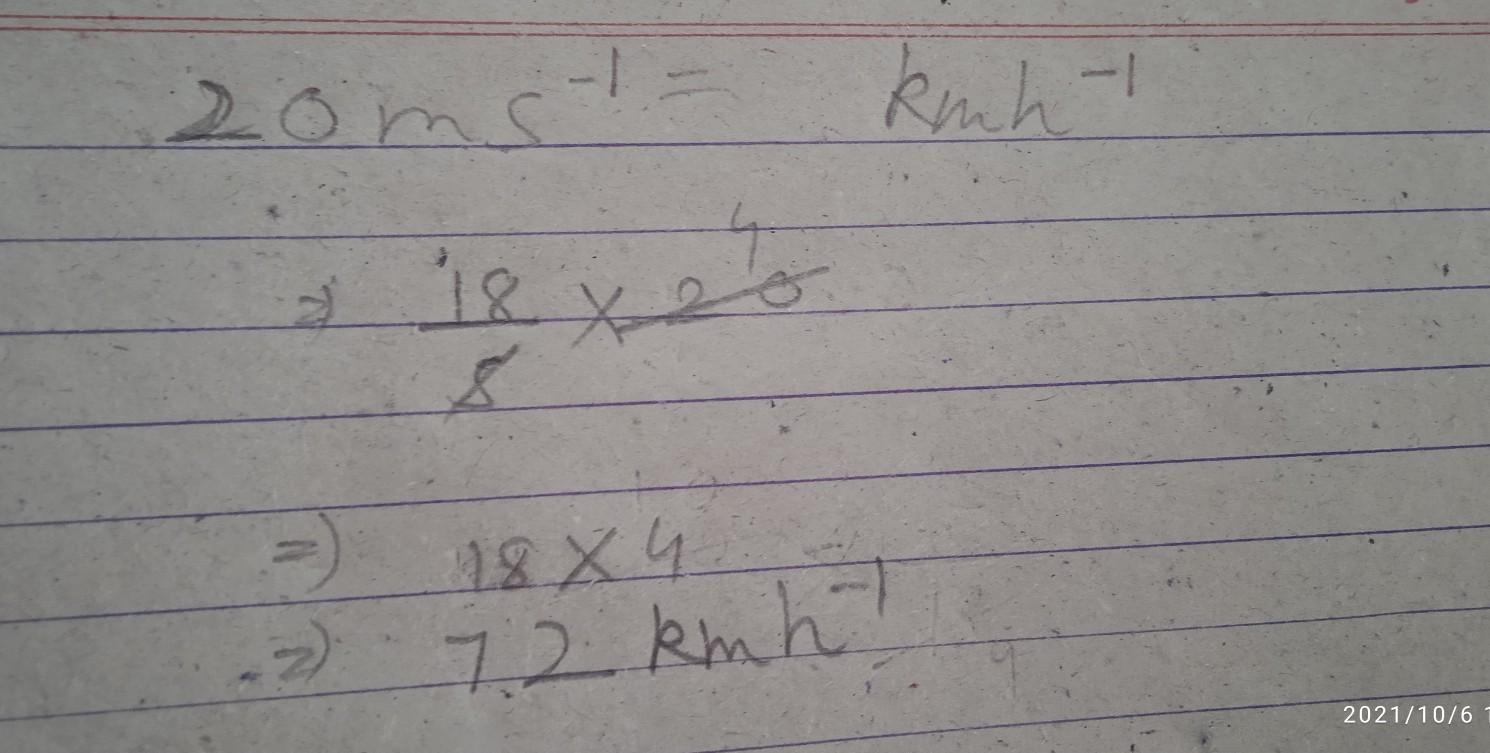 20 ms⁻¹ = kmh⁻¹
4
⇒ 18/5 × 20
⇒ 18 × 4
⇒ 72 kmh⁻¹
2021/10/6 1